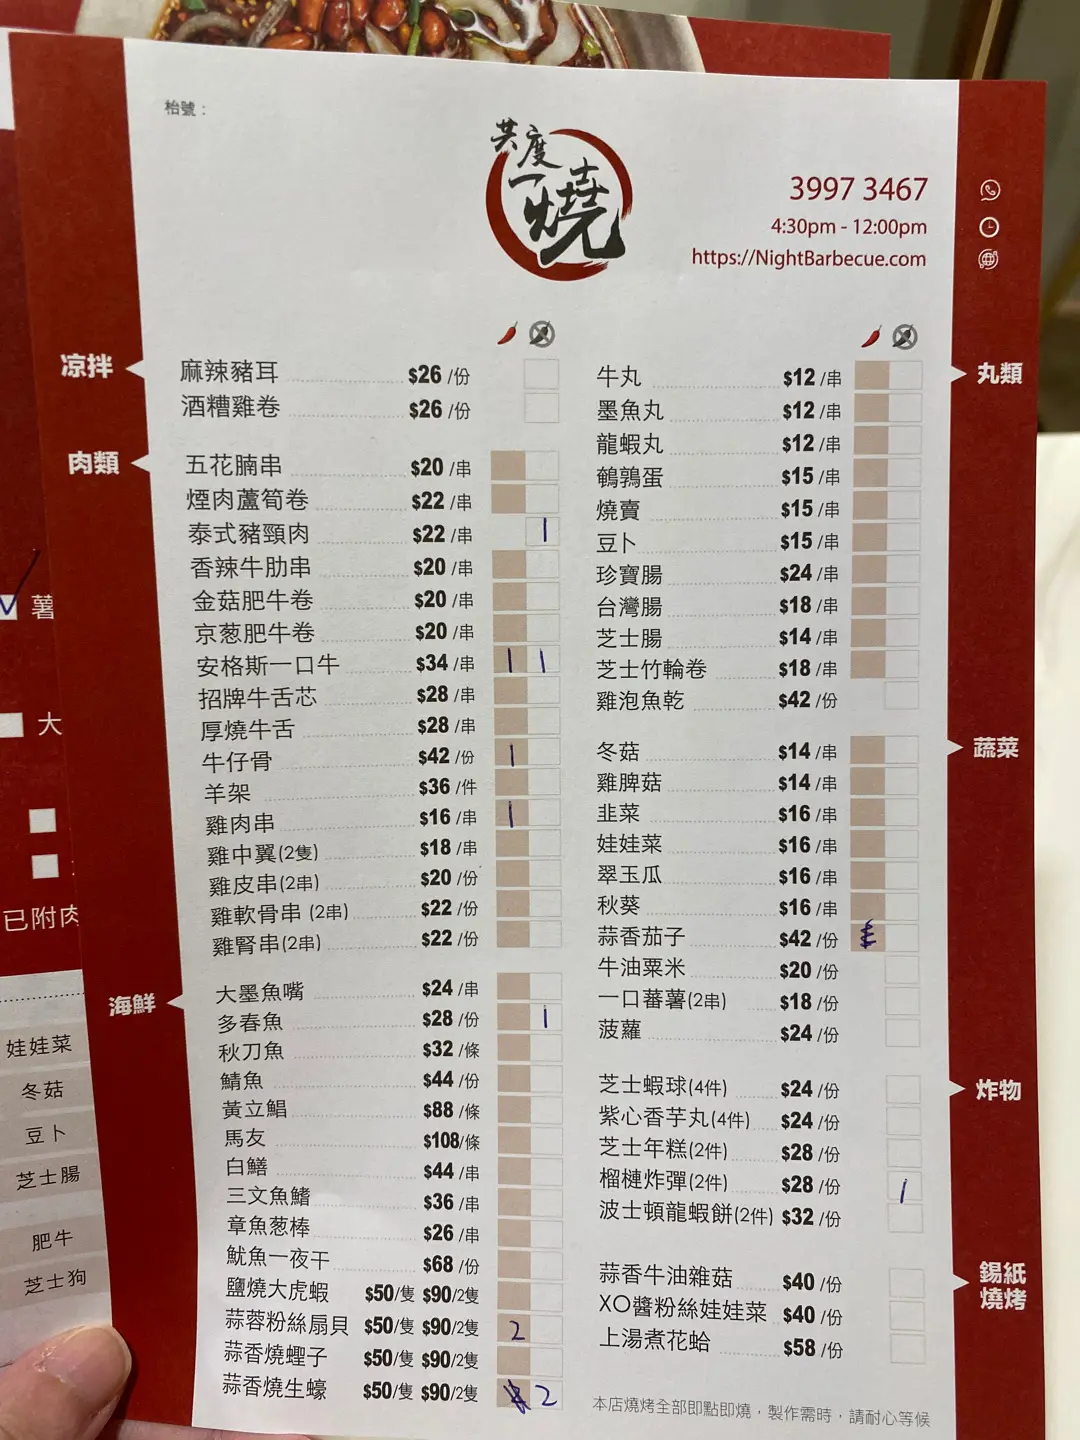 枱號：
共度一燒
3997 3467
4:30pm - 12:00pm
https://NightBarbecue.com
凉拌
麻辣豬耳 $26 /份
酒糟雞卷 $26 /份
肉類
五花腩串 $20 /串
煙肉蘆筍卷 $22 /串
泰式豬頸肉 $22 /串 1
香辣牛肋串 $20 /串
金菇肥牛卷 $20 /串
京葱肥牛卷 $20 /串
安格斯一口牛 $34 /串 1 1
招牌牛舌芯 $28 /串
厚燒牛舌 $28 /串
牛仔骨 $42 /份 1
羊架 $36 /件
雞肉串 $16 /串 1
雞中翼(2隻) $18 /串
雞皮串(2串) $20 /份
雞軟骨串 (2串) $22 /份
雞腎串(2串) $22 /份
海鮮
大墨魚嘴 $24 /串
多春魚 $28 /份 1
秋刀魚 $32 /條
鯖魚 $44 /份
黃立鯧 $88 /條
馬友 $108/條
白鱔 $44 /串
三文魚鰭 $36 /串
章魚葱棒 $26 /串
魷魚一夜干 $68 /份
鹽燒大虎蝦 $50/隻 $90/2隻
蒜蓉粉絲扇貝 $50/隻 $90/2隻 2
蒜香燒蟶子 $50/隻 $90/2隻
蒜香燒生蠔 $50/隻 $90/2隻 2
丸類
牛丸 $12 /串
墨魚丸 $12 /串
龍蝦丸 $12 /串
鵪鶉蛋 $15 /串
燒賣 $15 /串
豆卜 $15 /串
珍寶腸 $24 /串
台灣腸 $18 /串
芝士腸 $14 /串
芝士竹輪卷 $18 /串
雞泡魚乾 $42 /份
蔬菜
冬菇 $14 /串
雞脾菇 $14 /串
韭菜 $16 /串
娃娃菜 $16 /串
翠玉瓜 $16 /串
秋葵 $16 /串
蒜香茄子 $42 /份
牛油粟米 $20 /份
一口蕃薯(2串) $18 /份
菠蘿 $24 /份
炸物
芝士蝦球(4件) $24 /份
紫心香芋丸(4件) $24 /份
芝士年糕(2件) $28 /份
榴槤炸彈(2件) $28 /份 1
波士頓龍蝦餅(2件) $32 /份
錫紙
燒烤
蒜香牛油雜菇 $40 /份
XO醬粉絲娃娃菜 $40 /份
上湯煮花蛤 $58 /份
本店燒烤全部即點即燒，製作需時，請耐心等候
薯
大
已附肉
娃娃菜
冬菇
豆卜
芝士腸
肥牛
芝士狗